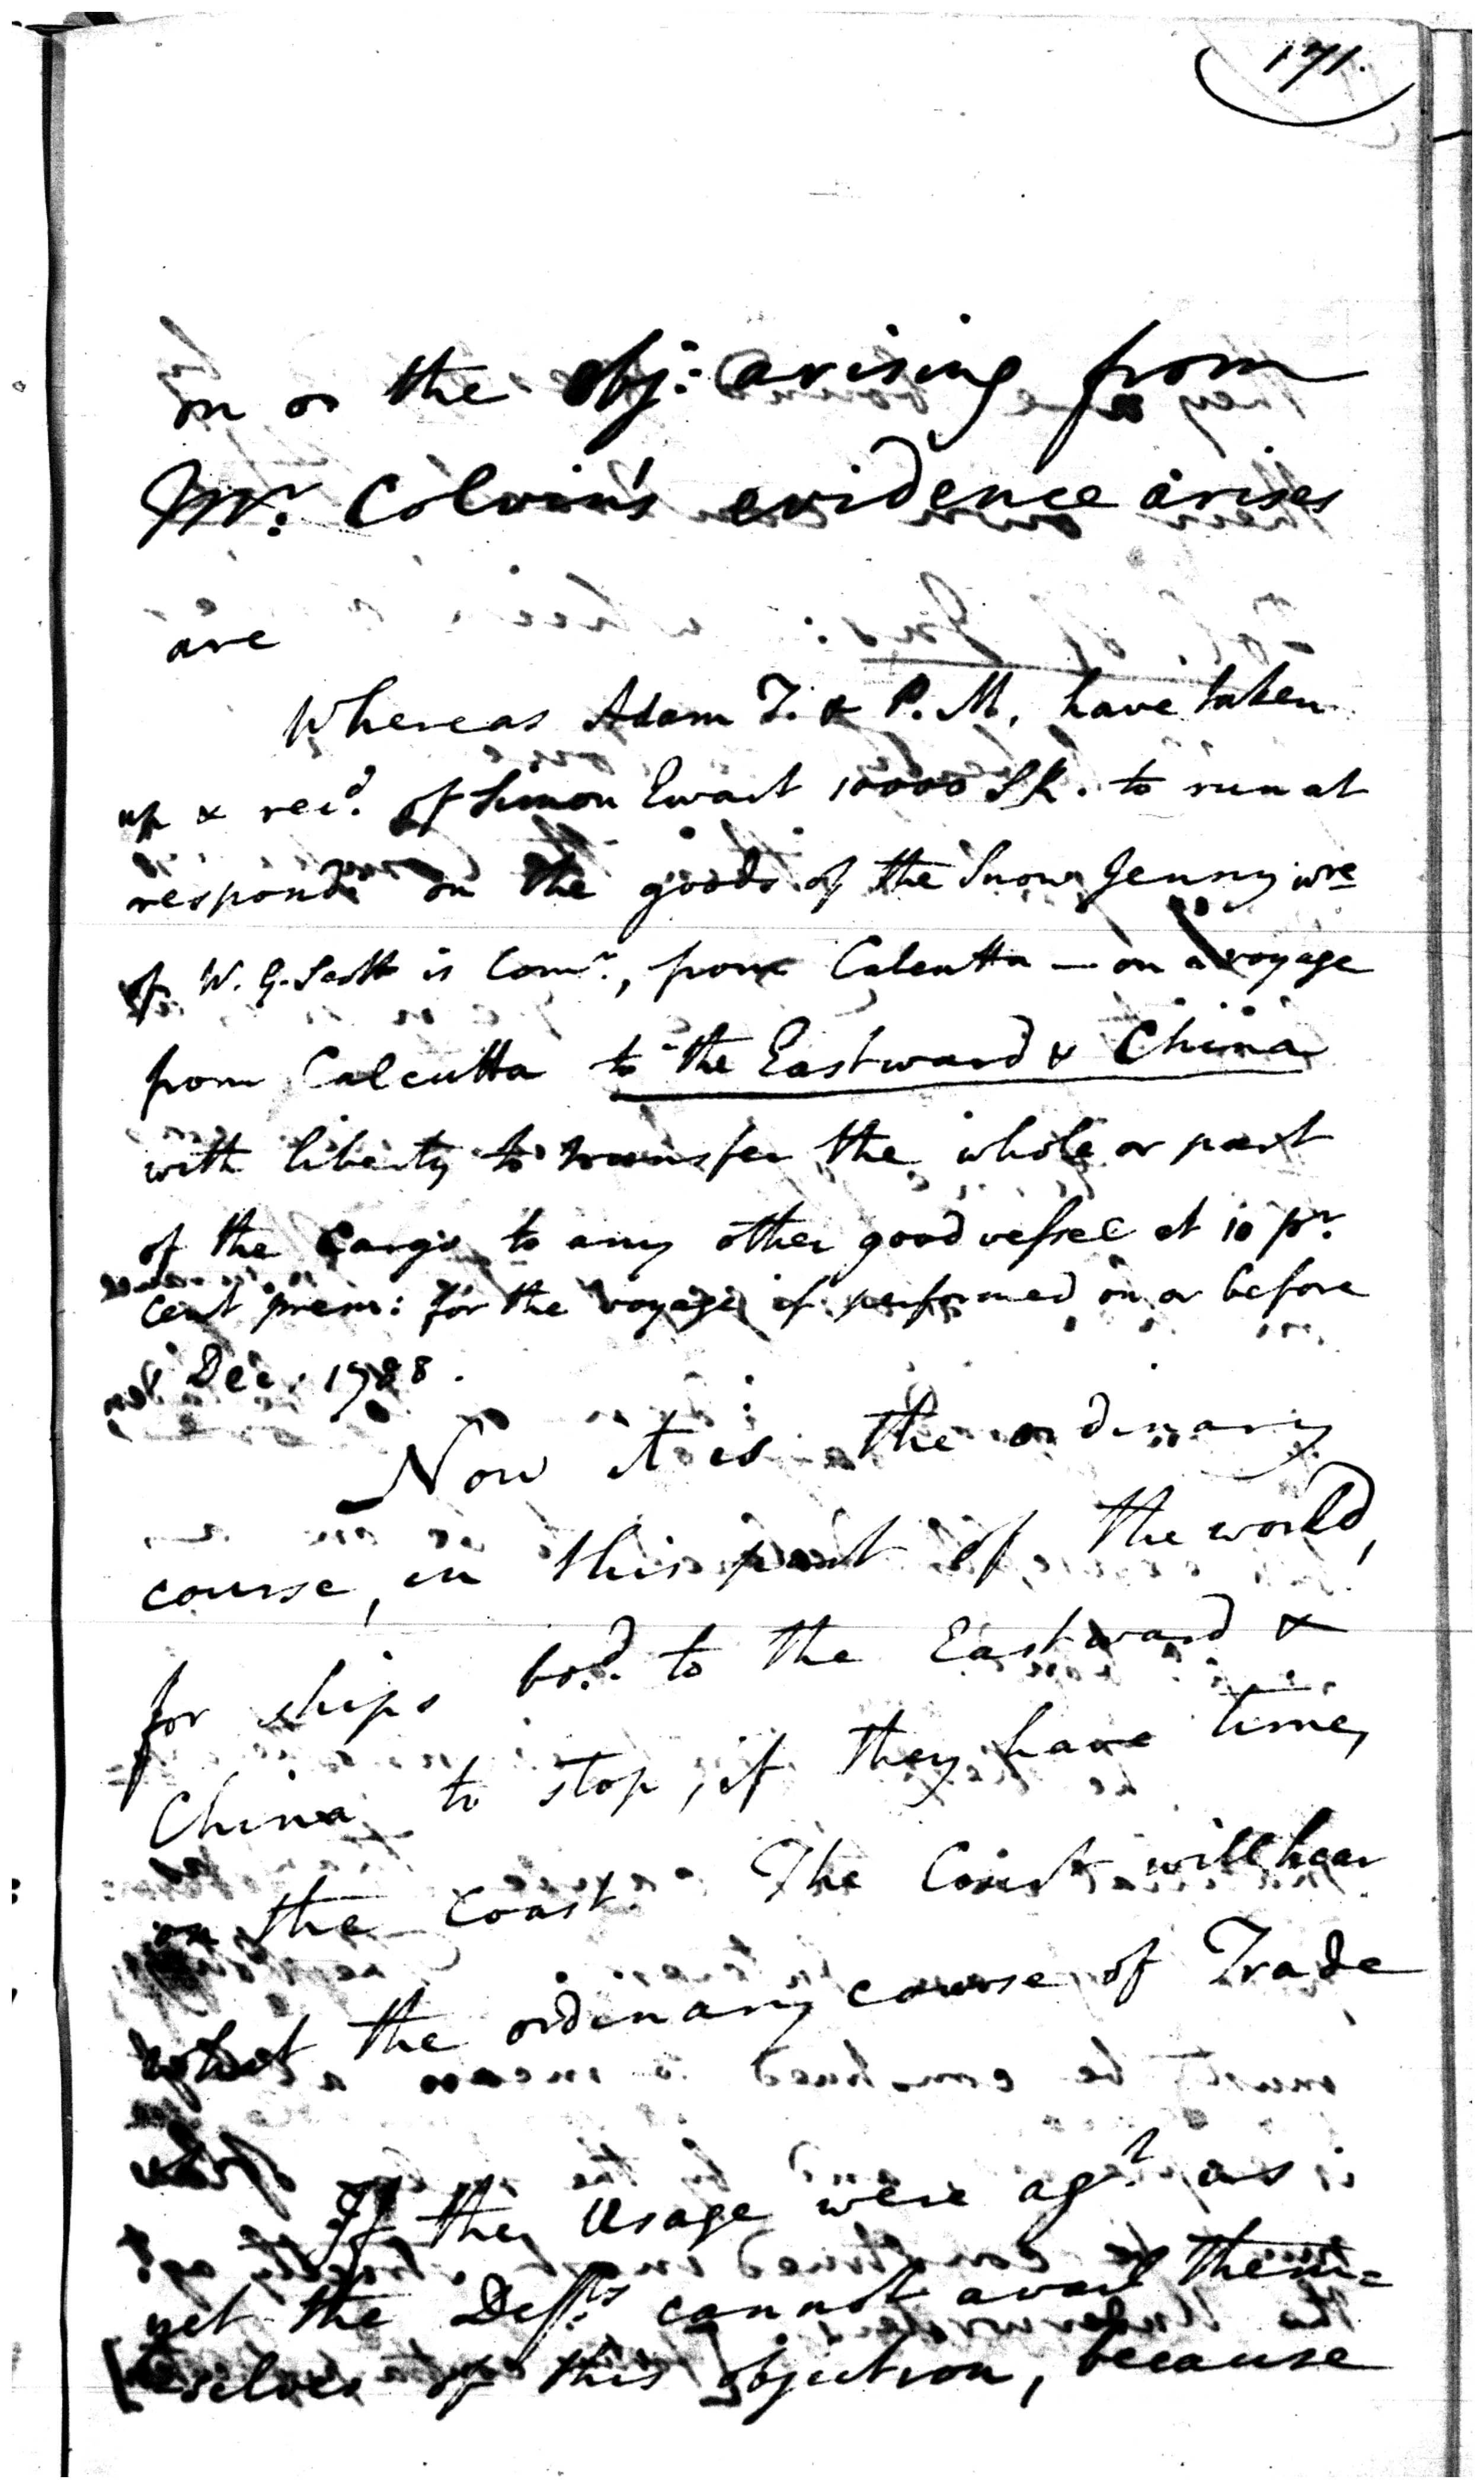 171.
on or the obj: arising from
Mr. Colvin's evidence arises
are
Whereas Adam T. & P. M. have taken
up & rec'd. of Simon Ewart 10000 SR. to run at
respond: on the goods of the Snow Jenny wre
of W. G. Scott is Comr., from Calcutta — on a voyage
from Calcutta to the Eastward & China
with liberty to transfer the whole or part
of the Cargo to any other good vessel at 10 pr.
Cent prem: for the voyage if performed on or before
Dec. 1788.
Now it is the ordinary
course, in this part of the world,
for ships bo.d to the Eastward &
China to stop, if they have time,
on the Coast. The Court will hear
what the ordinary course of Trade
If the Usage were agt us
yet the Defts cannot avail them=
selves of this objection, because